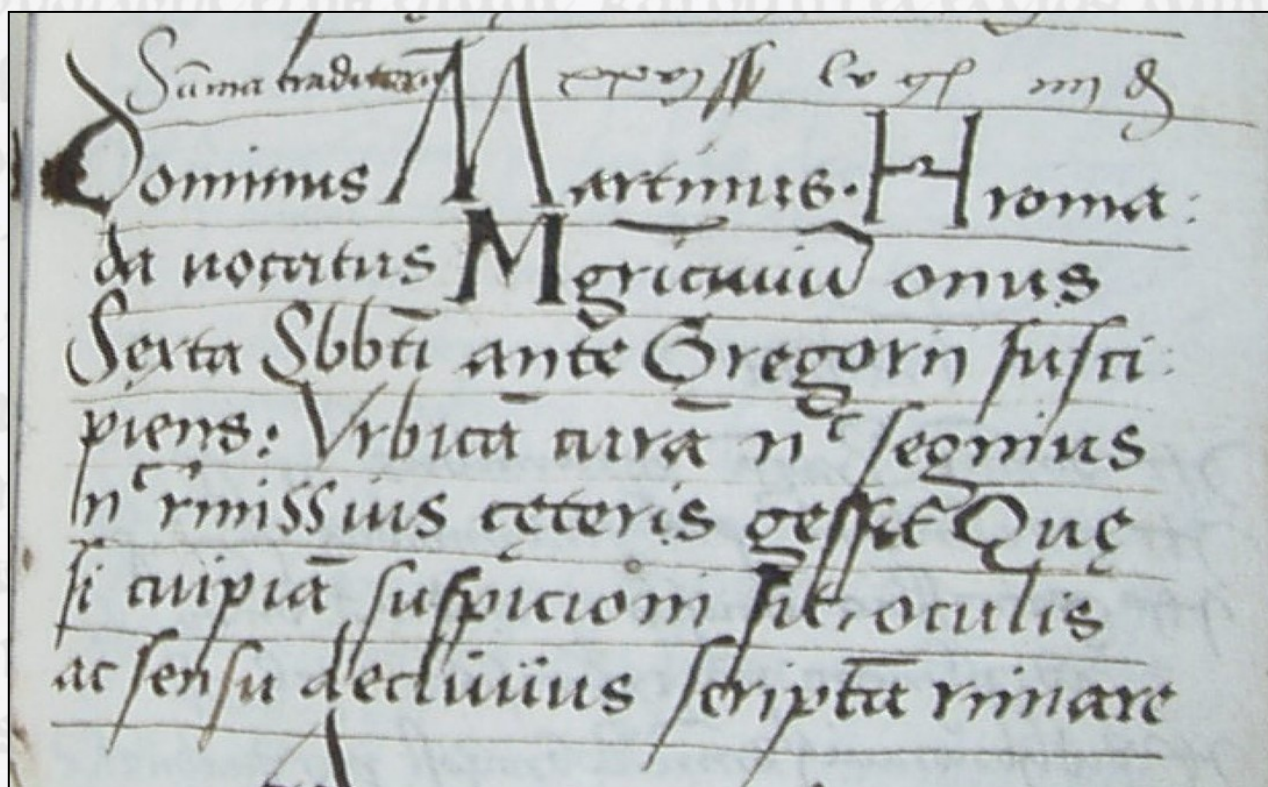 Sūma traditoria xxvj ss lv gl iiij đ
Dominus Martinus. Hroma:
da uocatus Mgrīcuuiū onus
Sexta Sbbtī ante Gregorii susci:
piens: Vrbicā curā nᶜ segnius
nᶜ rmissius cęteris gessit Quę
si cuipiā suspicioni sit, oculis
ac sensu decliuius scriptā rimare